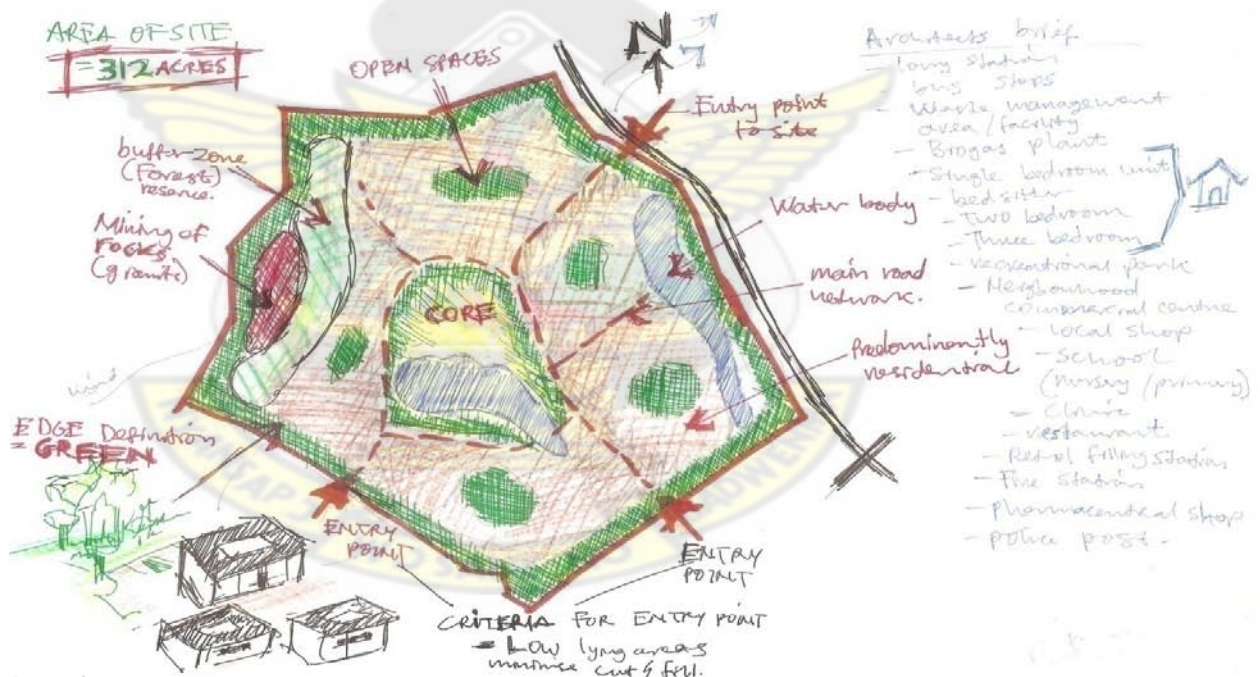 AREA OF SITE
= 312 ACRES
OPEN SPACES
N
Entry point
to site
buffer-zone
(Forest)
reserve.
Mining of
ROCKS
(granite)
CORE
Water body
main road
network.
Predominently
residential
wind
EDGE Definition
= GREEN
ENTRY
POINT
ENTRY
POINT
CRITERIA FOR ENTRY POINT
= LOW lying areas
minimise cut & fill.
Architects brief
- lorry station
bus stops
- Waste management
area / facility
- Biogas plant
- Single bedroom unit
- bed sitter
- Two bedroom
- Three bedroom
- recreational park
- Neigbourhood
commercial centre
- local shop
- school
(nursery / primary)
- Clinic
- restaurant
- Petrol filling station
- Fire station
- pharmaceutical shop
- police post.